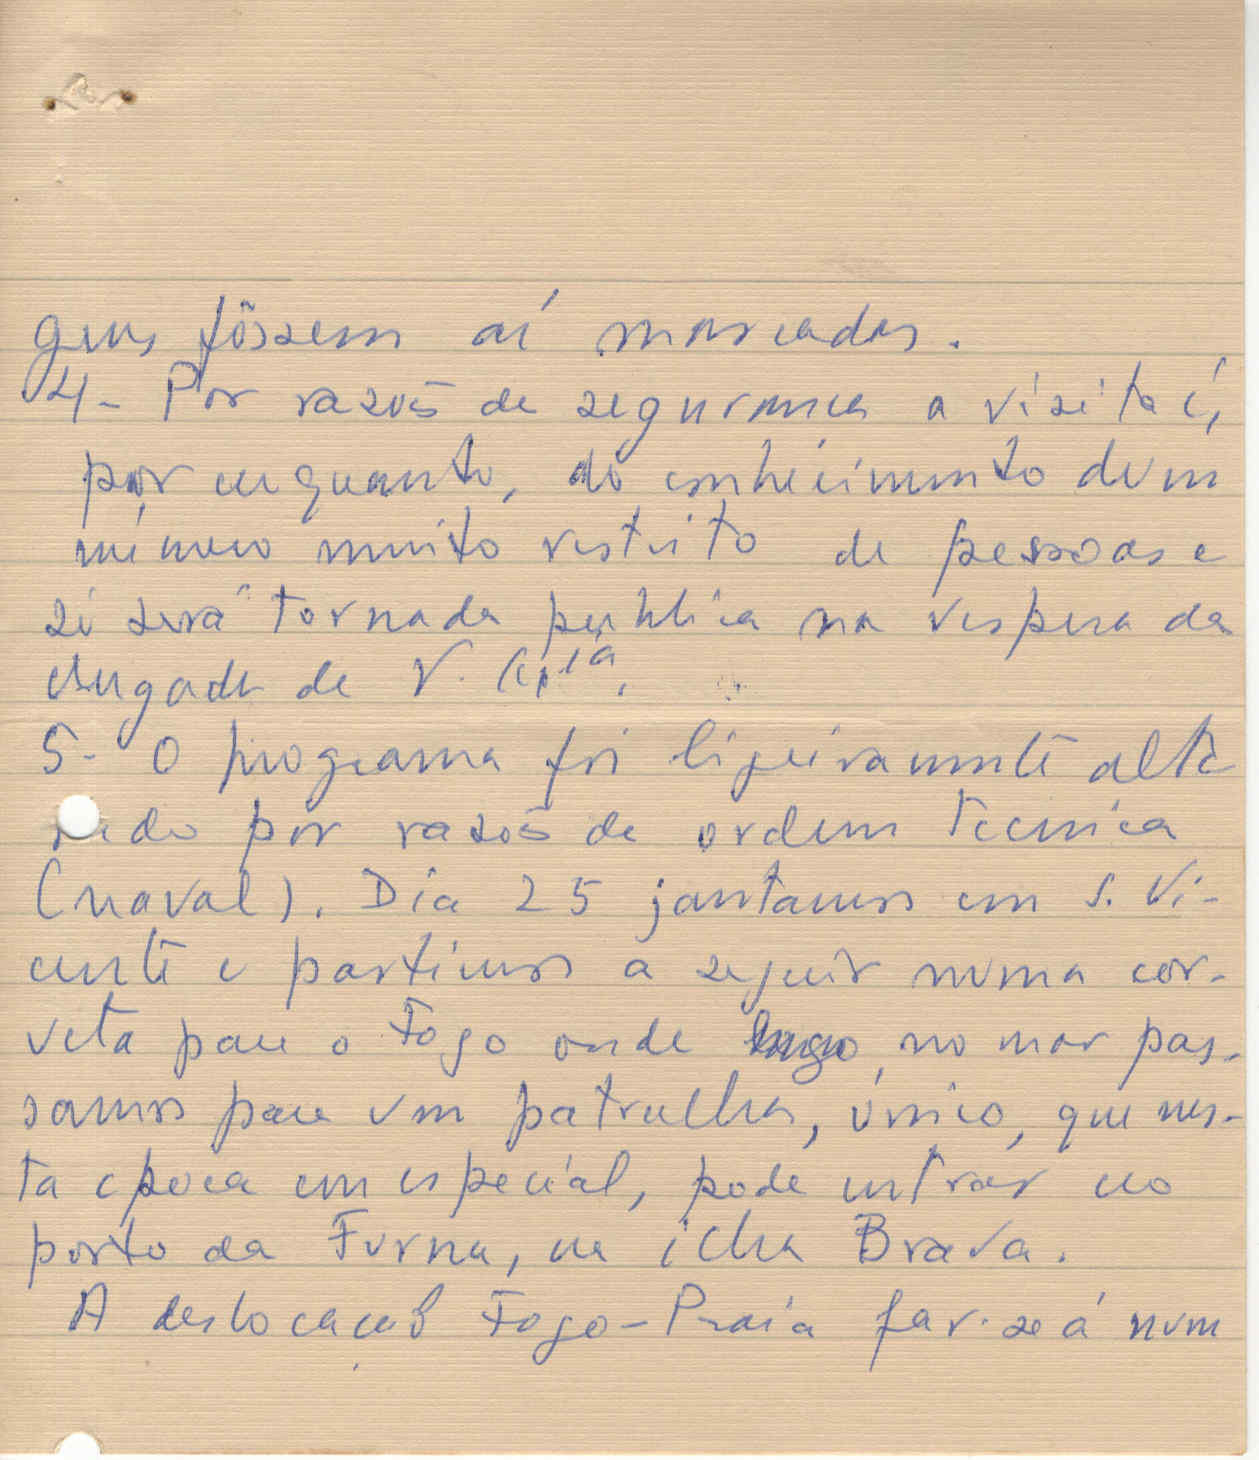 gens fôssem aí marcadas.
4- Por razões de segurança a visita é,
por enquanto, do conhecimento dum
número muito restrito de pessoas e
só será tornada pública na vespera da
chegada de V. Exª.
5- O programa foi ligeiramente alte
rado por razões de ordem tecnica
(naval). Dia 25 jantamos em S. Vi-
cente e partimos a seguir numa cor-
veta para o Fogo onde logo, no mar pas-
samos para um patrulha, único, que nes-
ta epoca em especial, pode entrar no
porto da Furna, na ilha Brava.
A deslocação Fogo-Praia far-se-á num